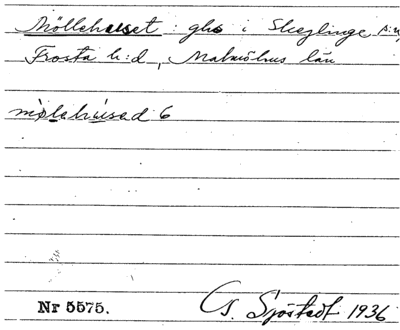 Möllehuset : ghs i Skeglinge s:n
Frosta h:d, Malmöhus län
mölehúsed 6
Nr 5575.
G. Sjöstedt 1936